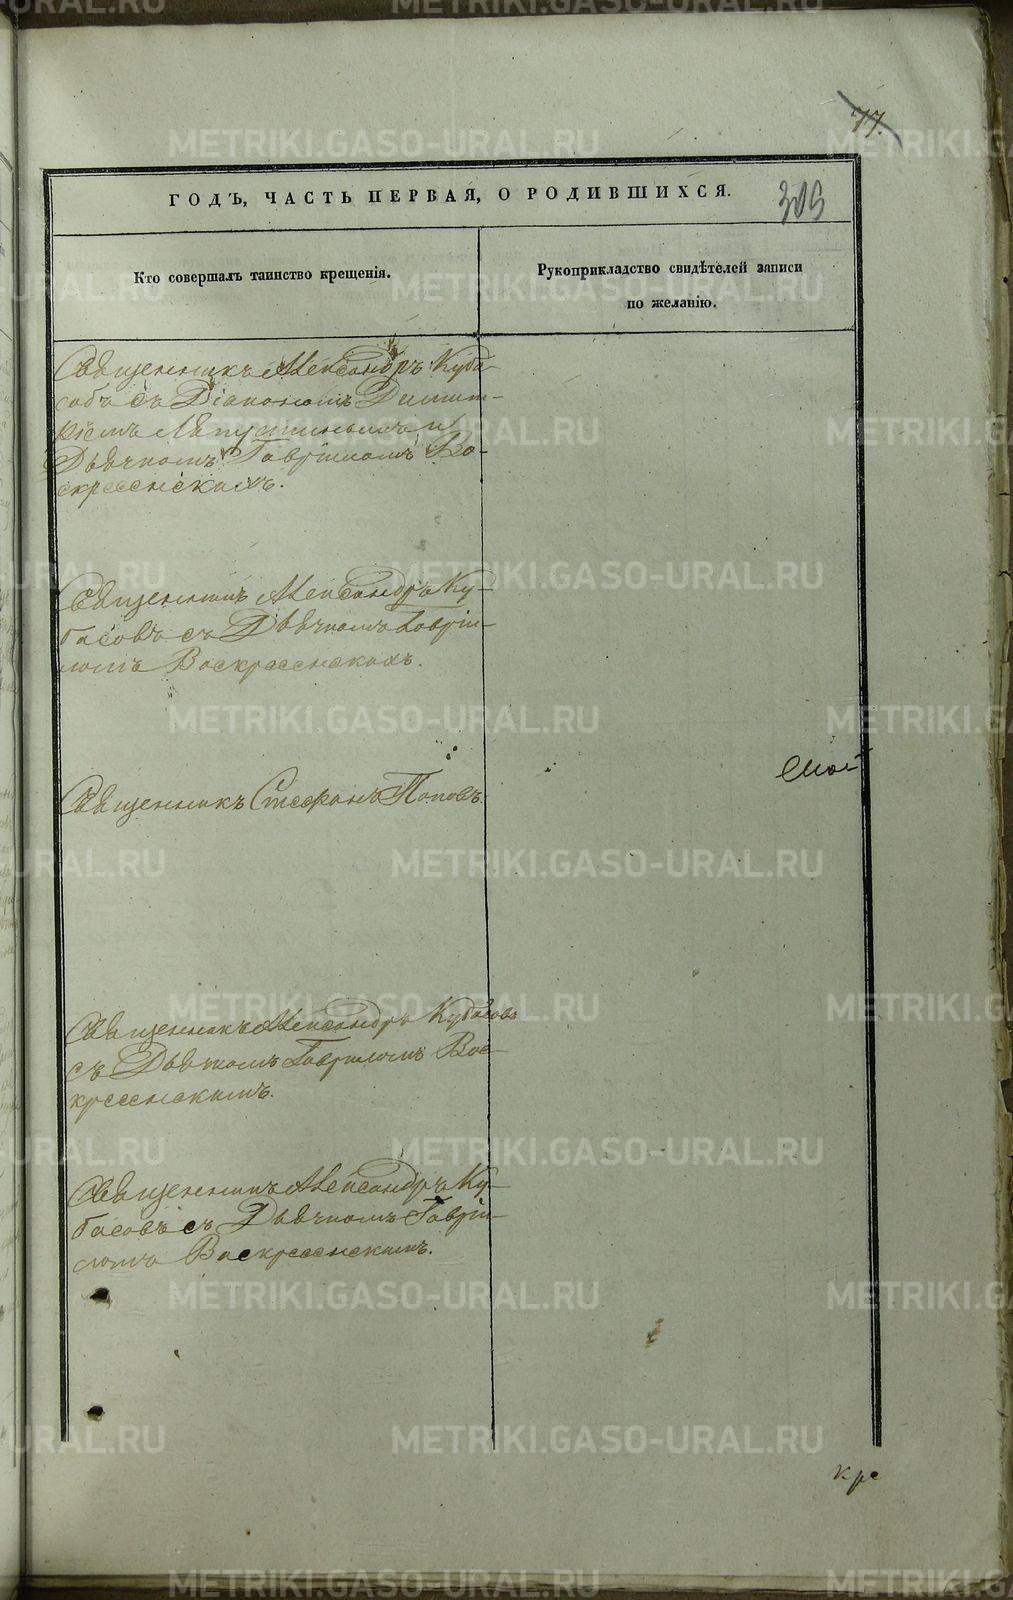 77.
ГОДЪ, ЧАСТЬ ПЕРВАЯ, О РОДИВШИХСЯ.
309
Кто совершалъ таинство крещенія.
Рукоприкладство свидѣтелей записи
по желанію.
Священникъ Александръ Куба-
совъ съ Діакономъ Димит-
ріемъ Ляпустинымъ и
Дьячкомъ Гавріиломъ Во-
скресенскимъ.
Священникъ Александръ Ку-
басовъ съ Дьячкомъ Гаврі-
иломъ Воскресенскимъ.
Священникъ Стефанъ Поповъ.
Священникъ Александръ Кубасовъ
съ Дьячкомъ Гавріиломъ Вос-
кресенскимъ.
Священникъ Александръ Ку-
басовъ съ Дьячкомъ Гаврі-
иломъ Воскресенскимъ.
METRIKI.GASO-URAL.RU